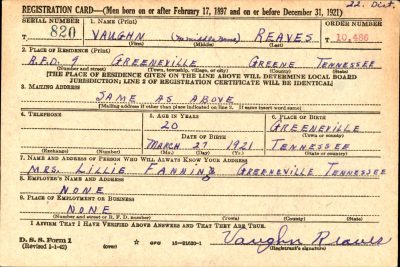 REGISTRATION CARD—(Men born on or after February 17, 1897 and on or before December 31, 1921)
SERIAL NUMBER 1. NAME (Print) ORDER NUMBER
T 820 VAUGHN (no middle name) REAVES T 10,486
(First) (Middle) (Last)
2. PLACE OF RESIDENCE (Print)
R.F.D. 9 GREENEVILLE GREENE TENNESSEE
(Number and street) (Town, township, village, or city) (County) (State)
[THE PLACE OF RESIDENCE GIVEN ON THE LINE ABOVE WILL DETERMINE LOCAL BOARD
JURISDICTION; LINE 2 OF REGISTRATION CERTIFICATE WILL BE IDENTICAL]
3. MAILING ADDRESS
SAME AS ABOVE
[Mailing address if other than place indicated on line 2. If same insert word same]
4. TELEPHONE 5. AGE IN YEARS 6. PLACE OF BIRTH
20 GREENEVILLE
DATE OF BIRTH (Town or county)
MARCH 27 1921 TENNESSEE
(Exchange) (Number) (Mo.) (Day) (Yr.) (State or country)
7. NAME AND ADDRESS OF PERSON WHO WILL ALWAYS KNOW YOUR ADDRESS
MRS. LILLIE FANNING GREENEVILLE TENNESSEE
8. EMPLOYER'S NAME AND ADDRESS
NONE
9. PLACE OF EMPLOYMENT OR BUSINESS
NONE
(Number and street or R. F. D. number) (Town) (County) (State)
I AFFIRM THAT I HAVE VERIFIED ABOVE ANSWERS AND THAT THEY ARE TRUE.
D. S. S. Form 1
(Revised 1-1-42) (over) ☆ GPO 16—21630-1 Vaughn Reaves
(Registrant's signature)